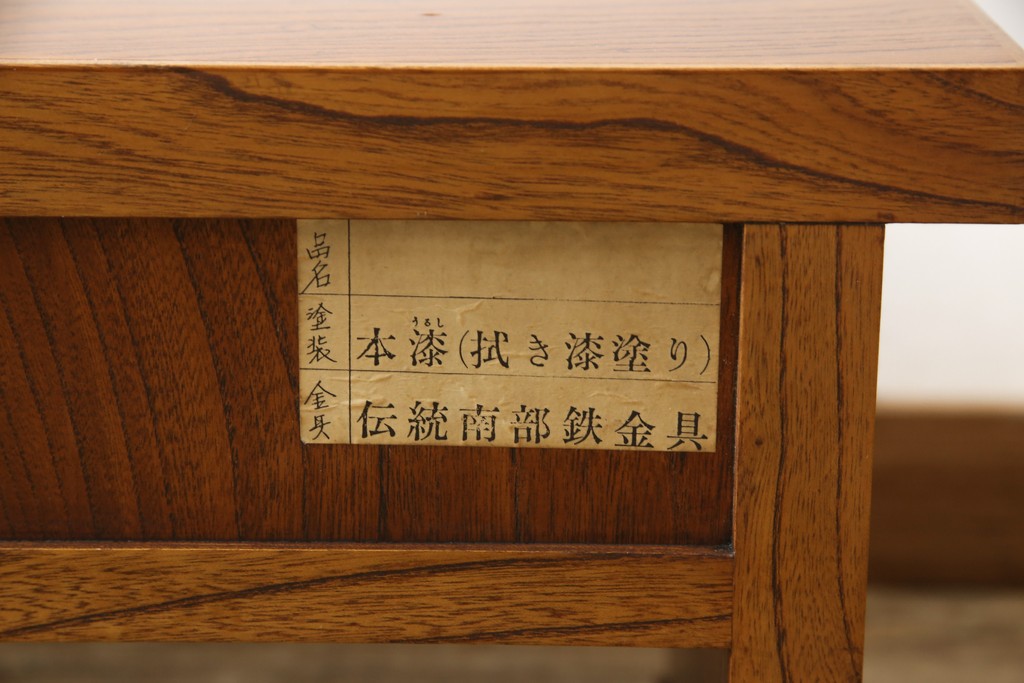 品名
塗装 本漆(拭き漆塗り)
うるし
金具 伝統南部鉄金具